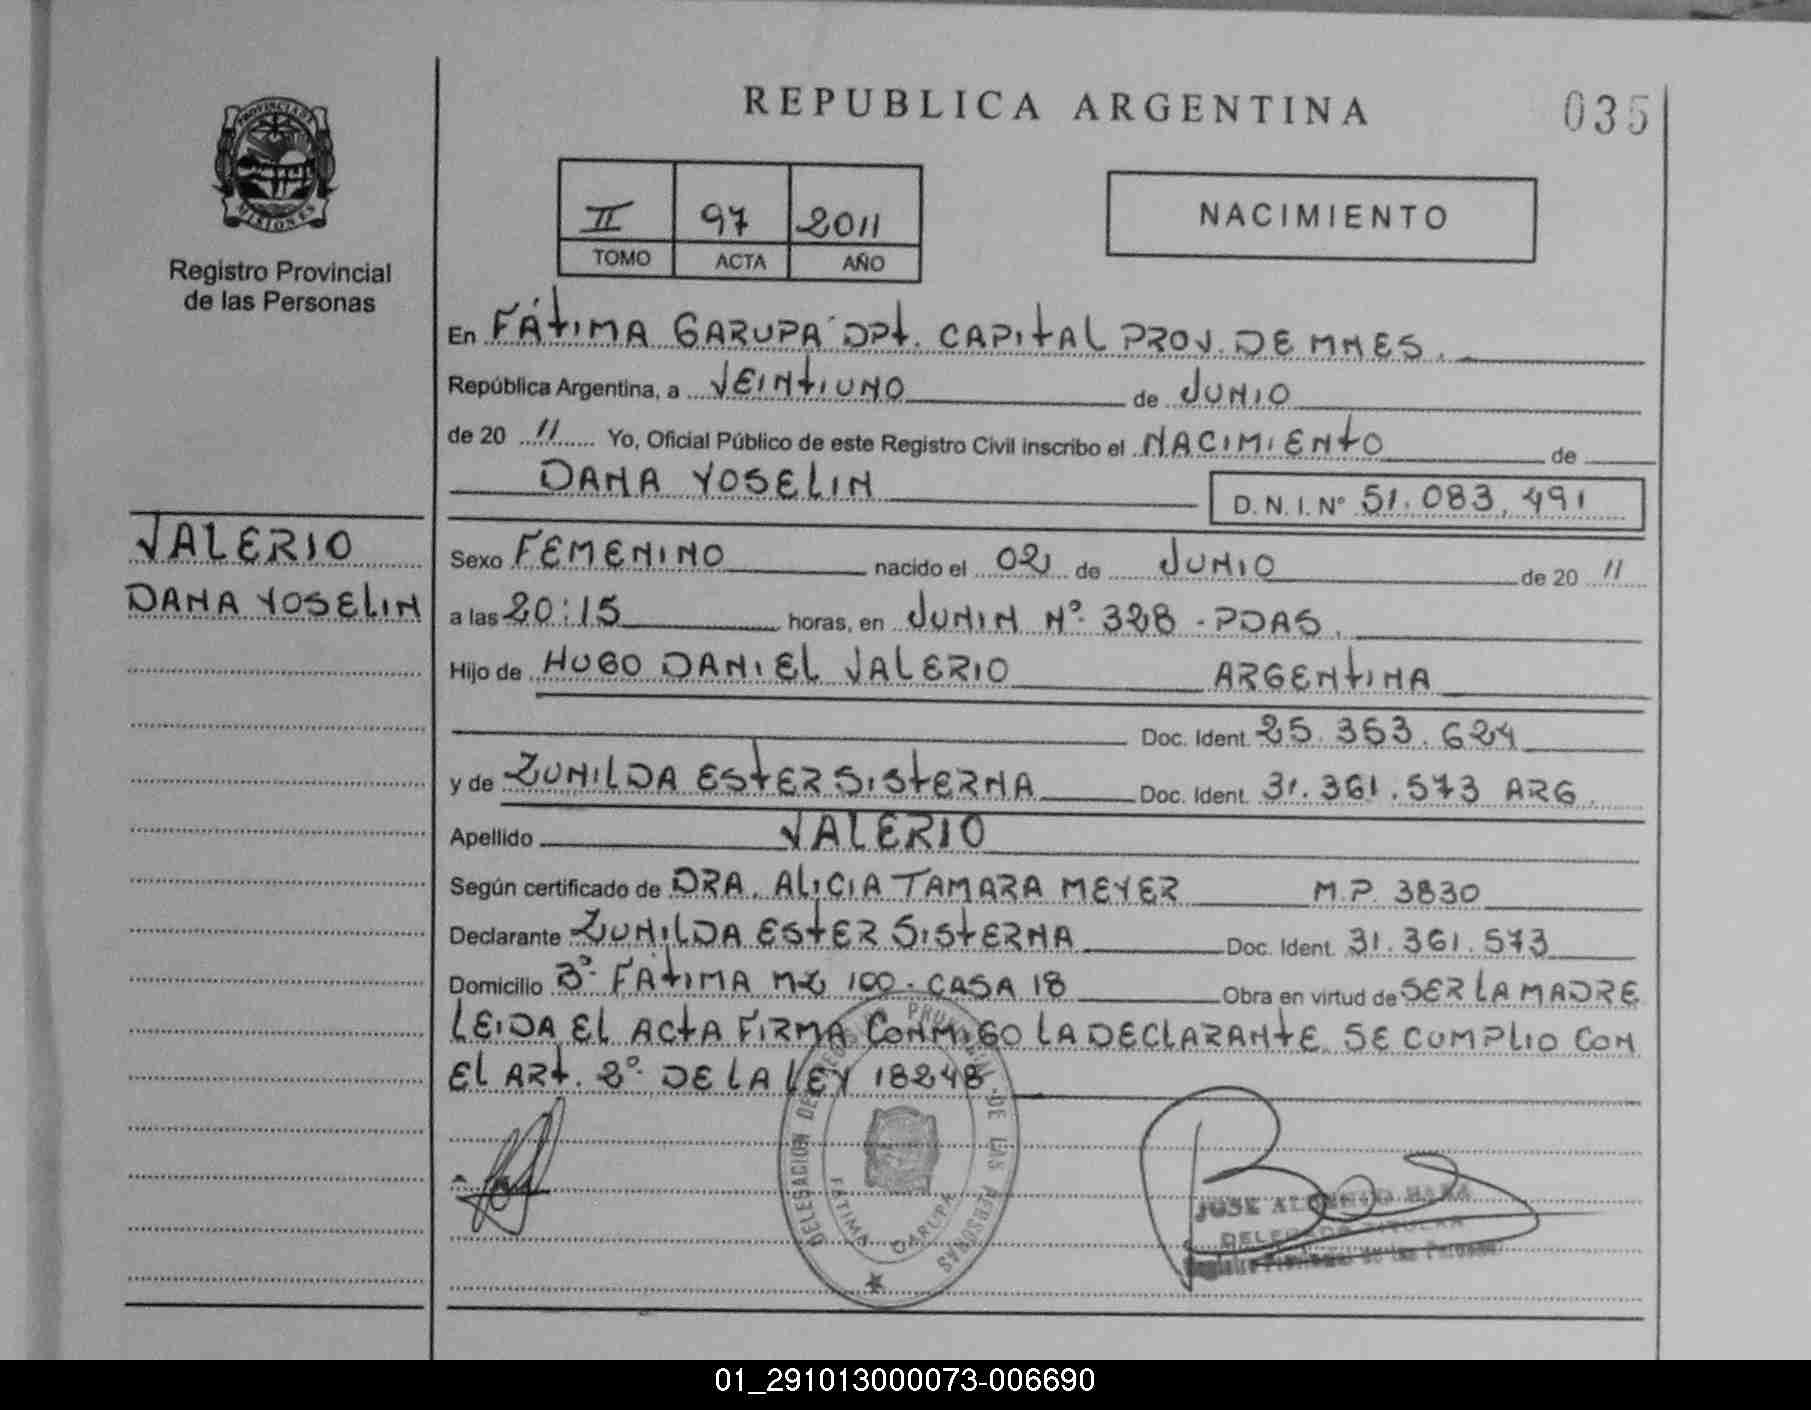 REPUBLICA ARGENTINA
035
PROVINCIA DE
MISIONES
Registro Provincial
de las Personas
II 97 2011
TOMO ACTA AÑO
NACIMIENTO
En FÁTIMA GARUPA DPT. CAPITAL PROV. DE MNES.
República Argentina, a VEINTIUNO de JUNIO
de 20 11 Yo, Oficial Público de este Registro Civil inscribo el NACIMIENTO de
DANA YOSELIN D. N. I. Nº 51.083.491
VALERIO
DANA YOSELIN
Sexo FEMENINO nacido el 02 de JUNIO de 20 11
a las 20:15 horas, en JUNIN Nº 328 - PDAS.
Hijo de HUGO DANIEL VALERIO ARGENTINA
Doc. Ident. 25.353.624
y de ZUNILDA ESTER SISTERNA Doc. Ident. 31.361.573 ARG.
Apellido VALERIO
Según certificado de DRA. ALICIA TAMARA MEYER M.P. 3830
Declarante ZUNILDA ESTER SISTERNA Doc. Ident. 31.361.573
Domicilio Bº FÁTIMA MZ 100 - CASA 18 Obra en virtud de SER LA MADRE
LEIDA EL ACTA FIRMA CONMIGO LA DECLARANTE. SE CUMPLIO CON
EL ART. 2º DE LA LEY 18248
DELEGACION DE REGISTRO PROVINCIAL DE LAS PERSONAS
FATIMA GARUPA
JOSE
DELEGADO TITULAR
Registro Provincial de las Personas
01_291013000073-006690